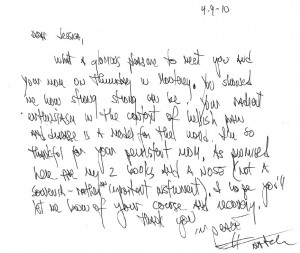 4-9-10
Dear Jessica,
What a glorious pleasure to meet you and
your mom on Thursday in Monterey. You showed
me how strong strong can be. Your radiant
enthusiasm in the context of hellish pain
and disease is a model for the world. I'm so
thankful for your persistent mom. As promised
here are my 2 books and a nose (not a
souvenir - rather important instrument). I hope you'll
let me know of your course and recovery.
Thank you
in peace